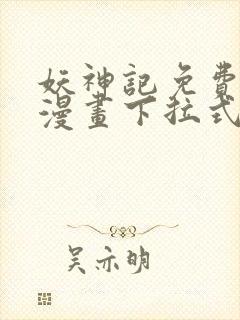 妖神記免費
漫畫下拉式
吴亦明